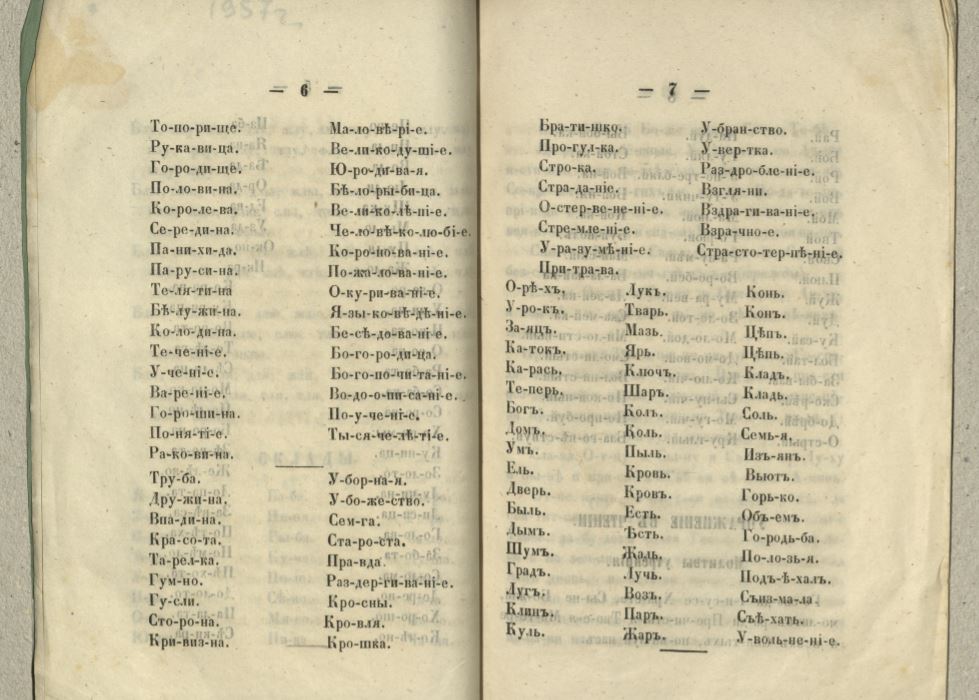 1957г
— 6 —
То-по-ри-ще.
Ру-ка-ви-ца.
Го-ро-ди-ще.
По-ло-ви-на.
Ко-ро-ле-ва.
Се-ре-ди-на.
Па-ни-хи-да.
Па-ру-си-на.
Те-ля-ти-на
Бѣ-лу-жи-на.
Ко-ло-ди-на.
Те-че-ні-е.
У-че-ні-е.
Ва-ре-ні-е.
Го-ро-ши-на.
По-ня-ті-е.
Ра-ко-ви-на.
Ма-ло-вѣ-рі-е.
Ве-ли-ко-ду-ші-е.
Ю-ро-ди-ва-я.
Бѣ-ло-ры-би-ца.
Ве-ли-ко-лѣ-пі-е.
Че-ло-вѣ-ко-лю-бі-е.
Ко-ро-но-ва-ні-е.
По-жа-ло-ва-ні-е.
О-ку-ри-ва-ні-е.
Я-зы-ко-вѣ-дѣ-ні-е.
Бе-сѣ-до-ва-ні-е.
Бо-го-ро-ди-ца.
Бо-го-по-чи-та-ні-е.
Во-до-о-пи-са-ні-е.
По-у-че-ні-е.
Ты-ся-че-лѣ-ті-е.
Тру-ба.
Дру-жи-на.
Впа-ди-на.
Кра-со-та.
Та-рел-ка.
Гум-но.
Гу-сли.
Сто-ро-на.
Кри-виз-на.
У-бор-на-я.
У-бо-же-ство.
Сем-га.
Ста-ро-ста.
Пра-вда.
Раз-дер-ги-ва-ні-е.
Кро-сны.
Кро-вля.
Кро-шка.
— 7 —
Бра-ти-шко.
Про-гул-ка.
Стро-ка.
Стра-да-ніе.
О-стер-ве-не-ні-е.
Стре-мле-ні-е.
У-ра-зу-мѣ-ні-е.
При-тра-ва.
У-бран-ство.
У-вер-тка.
Раз-дро-бле-ні-е.
Взгля-ни.
Вздра-ги-ва-ні-е.
Взра-чно-е.
Стра-сто-тер-пѣ-ні-е.
О-рѣ-хъ.
У-ро-къ.
За-яцъ.
Ка-токъ.
Ка-рась.
Те-перь.
Богъ.
Домъ.
Умъ.
Ель.
Дверь.
Быль.
Дымъ.
Шумъ.
Градъ.
Лугъ.
Клинъ.
Куль.
Лукъ.
Тварь.
Мазь.
Ярь.
Ключъ.
Шаръ.
Колъ.
Коль.
Пыль.
Кровь.
Кровъ.
Есть.
Ѣсть.
Жаль.
Лучь.
Возъ.
Паръ.
Жаръ.
Конь.
Конъ.
Цѣпъ.
Цѣпь.
Кладъ.
Кладь.
Соль.
Семь-я.
Изъ-янъ.
Вьютъ.
Горь-ко.
Объ-емъ.
Го-родь-ба.
По-ло-зь-я.
Подъ-ѣ-халъ.
Съна-ма-ла.
Съѣ-хать.
У-воль-не-ні-е.